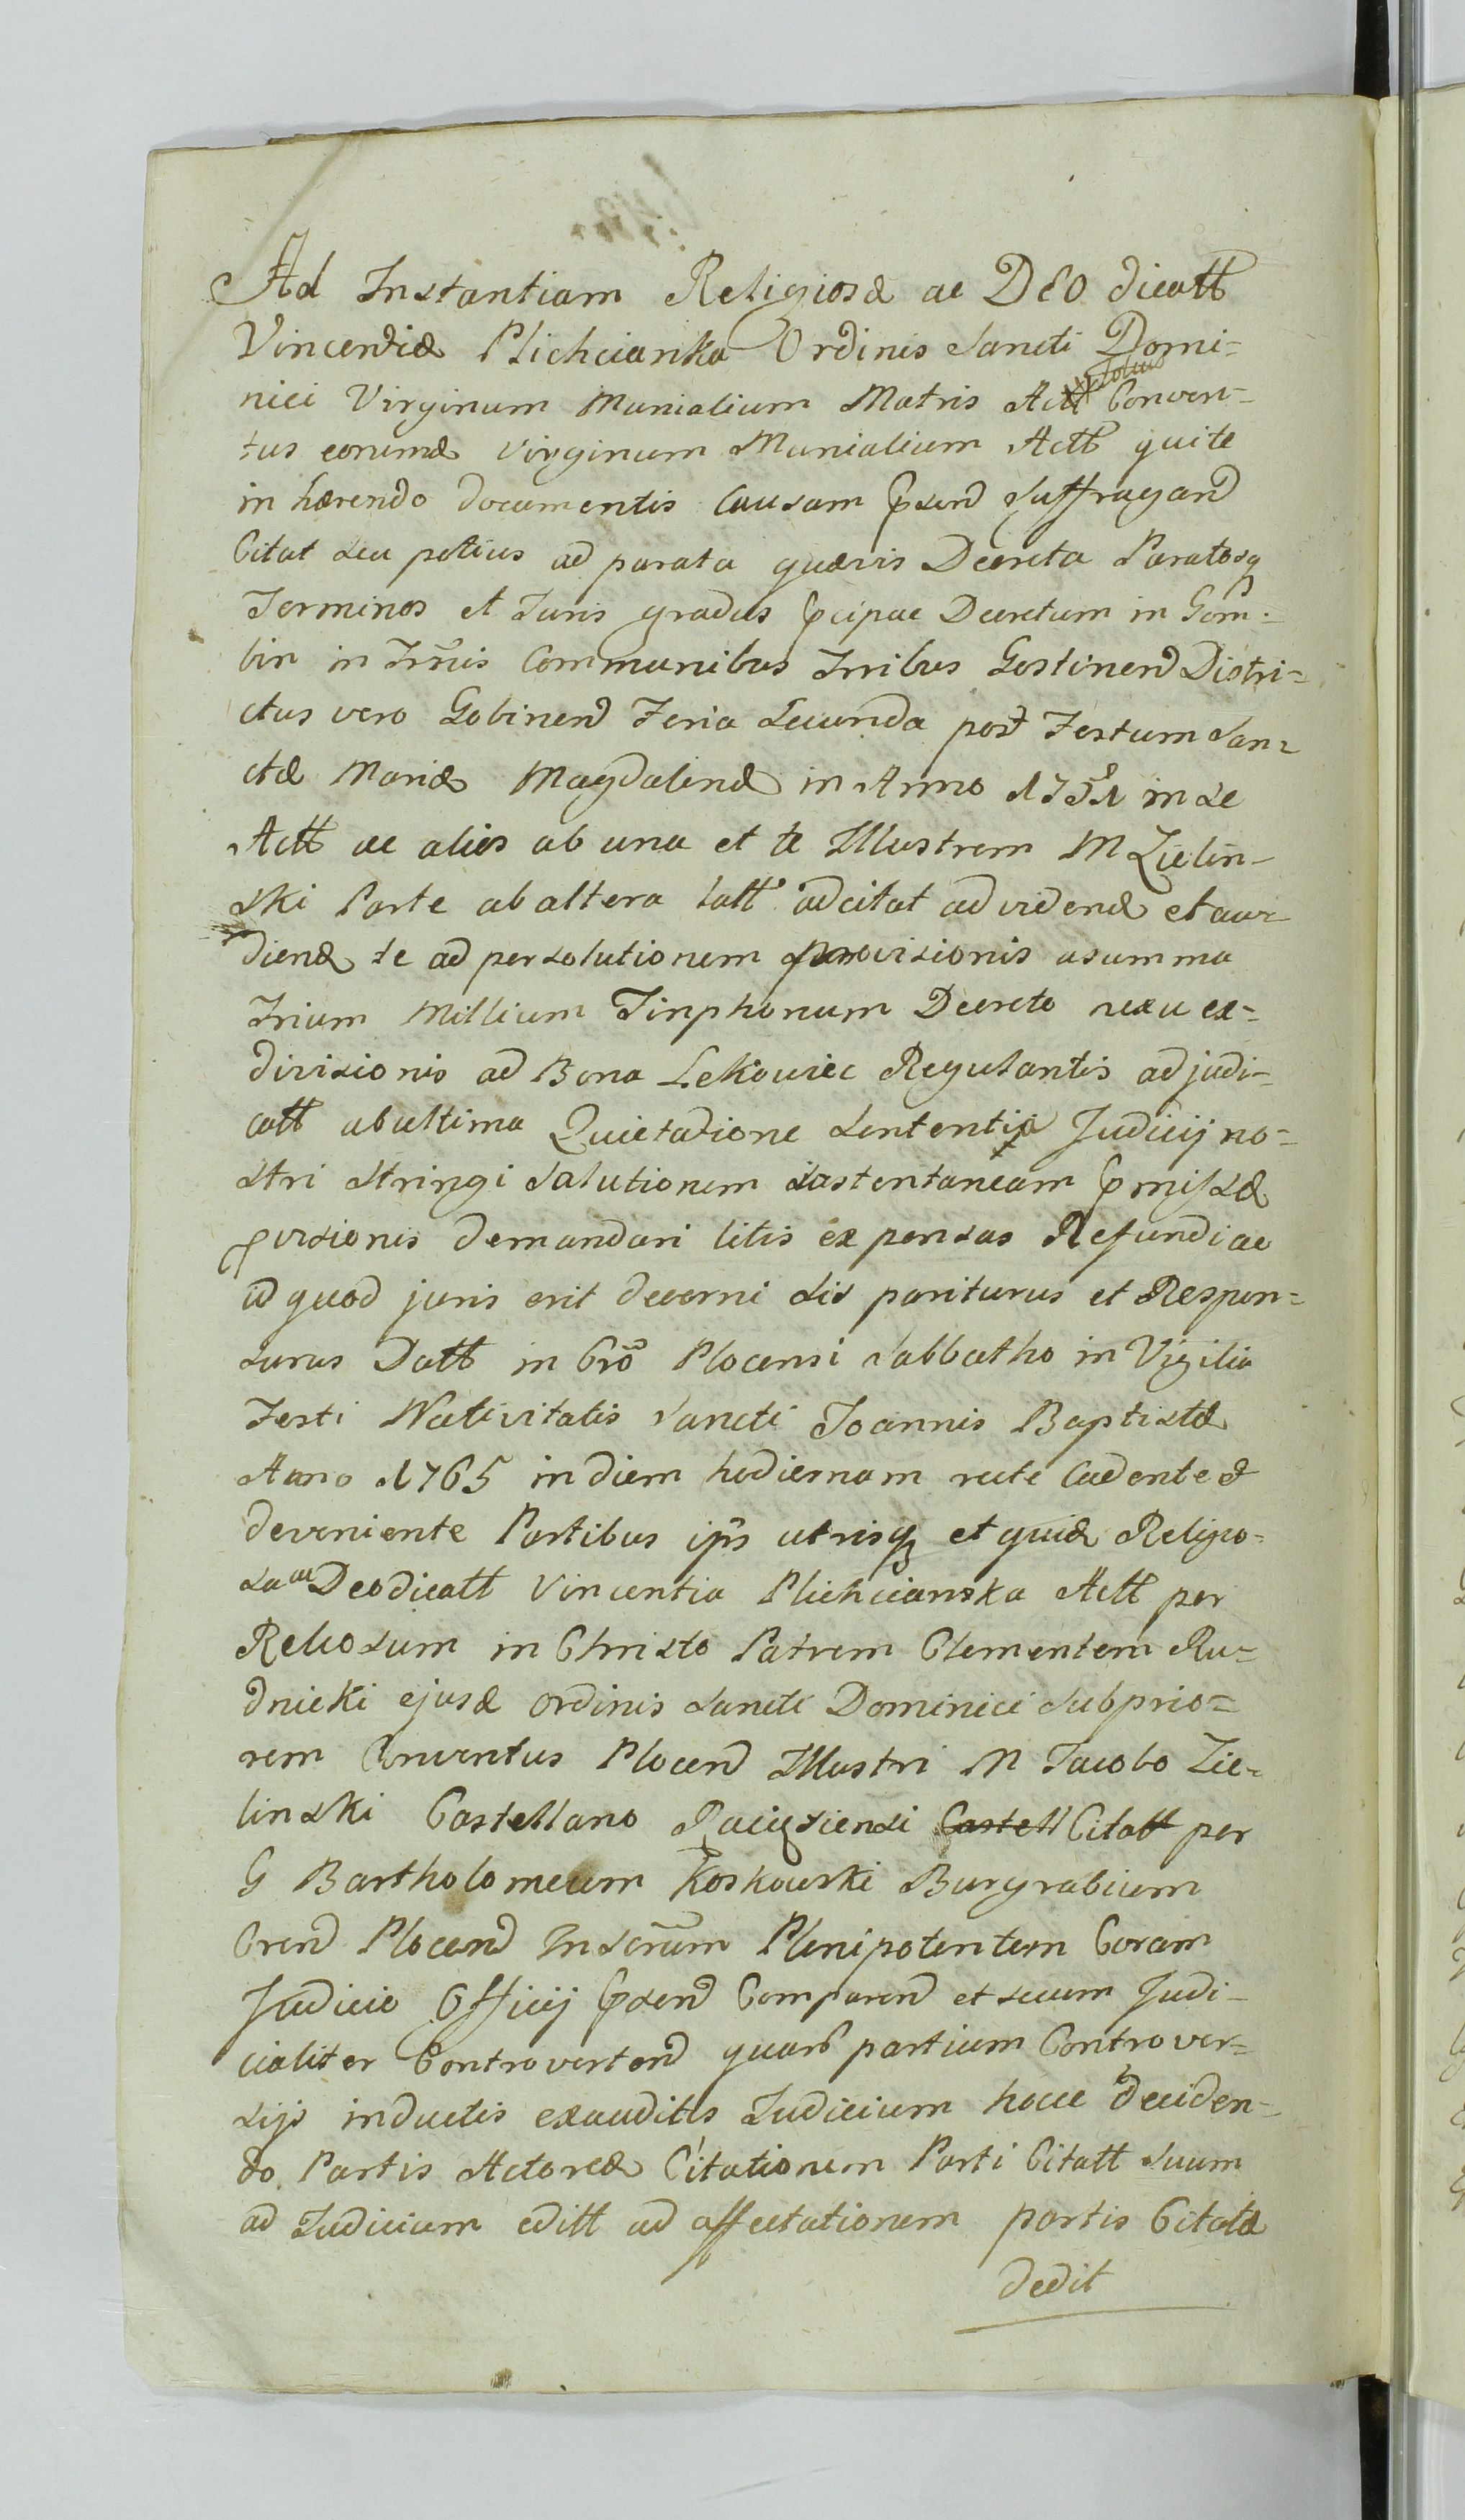 Ad Instantiam Religiosæ ac DEO dicatt
Vincentiæ Plichcianka Ordinis Sancti Domi=
nici Virginum Monialium Matris Convен=
tus eorumd Virginum Monialium Actt qui te
in hærendo documentis Causam Pnsen Suffragan
Citat seu potius ad parata quævis Decreta Paratosq
Terminos et Juris gradus Pcipue Decretum in Gom=
bin in Trñis Communibus Trribus Gostinen Distri=
ctus vero Gobinen Feria Secunda post Festum San=
ctæ Mariæ Magdalenæ in Anno 1751 in se
Actt ac alios ab una et te Illustrem M Zielin-
ski Parte ab altera latt adcitat ad videnð et au-
diend te ad persolutionem provisionis a summa
Trium Millium Tinphonum Decreto nexu ex=
divisionis ad Bona Lekowiec Regulantis adjudi-
catt ab ultima Quietatione Sententia Judicij no=
stri stringi Salutionem Pmissæ
Pvisionis demandari litis expensas Refundi ac
id quod juris erit decerni sis pariturus et Respon=
surus Datt in Cró Plocensi Sabbatho in Vigilia
Festi Nativitatis Sancti Joannis Baptistæ
Anno 1765 in diem hodiernam recte Cadente &
deveniente Partibus ips utrisq et quid Religio=
sa ac Deo dicatt Vincentia Plichcianska Actt per
Reliosum in Christo Patrem Clementem Ru=
dnicki ejusd Ordinis Sancti Dominici Subprio=
rem Conventus Plocen Illustri M Jacobo Zie=
linski Castellano Raciąsiensi Castell Citatt per
G Bartholomeum Koskowski Burgrabium
Cren Plocen Inscrum Plenipotentem Coram
Judicio Officij Psen Comparen et secum Judi-
cialiter Controverten quar partium Controver=
sijs inductis exauditis Judicium hocce deciden=
do Partis Actoreæ Citationem Parti Citatt Suum
ad Judicium editt ad affectationem partis Citatæ
dedit